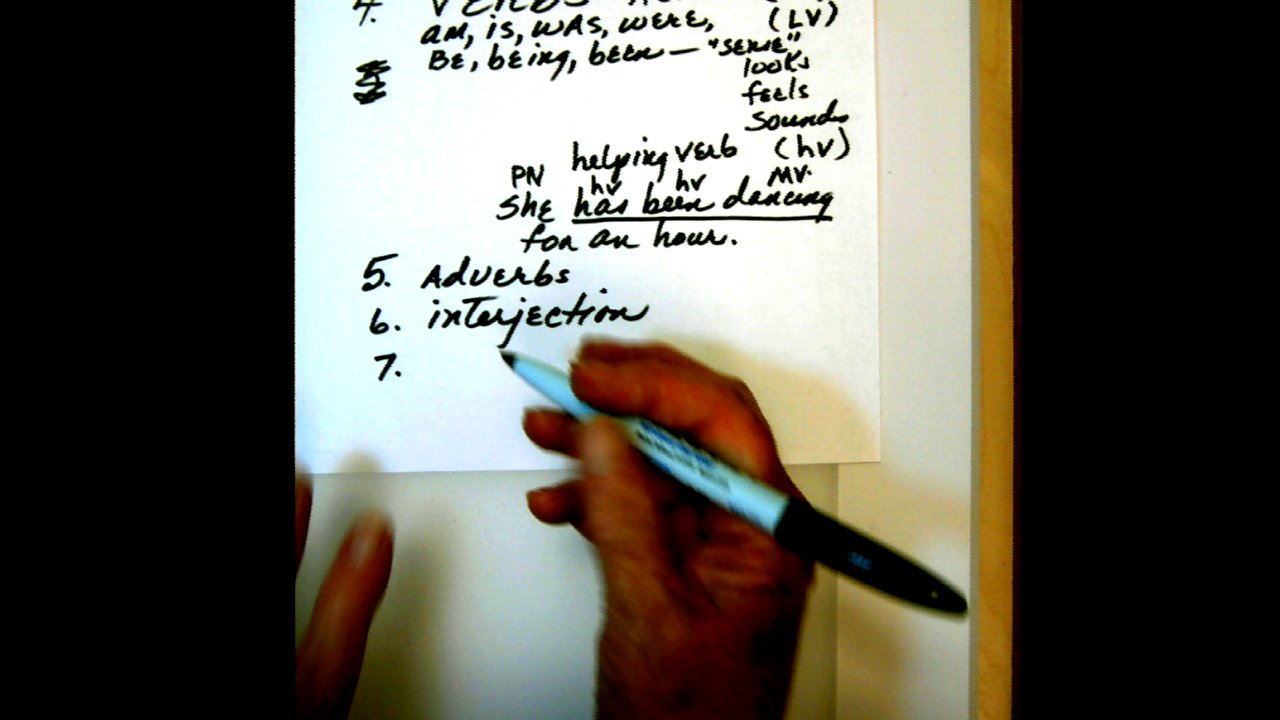 4. VERBS
am, is, was, were, (LV)
BE, being, been — "sense"
looks
feels
sounds
helping verb (hv)
PN hv hv MV.
She has been dancing
for an hour.
5. Adverbs
6. interjection
7.